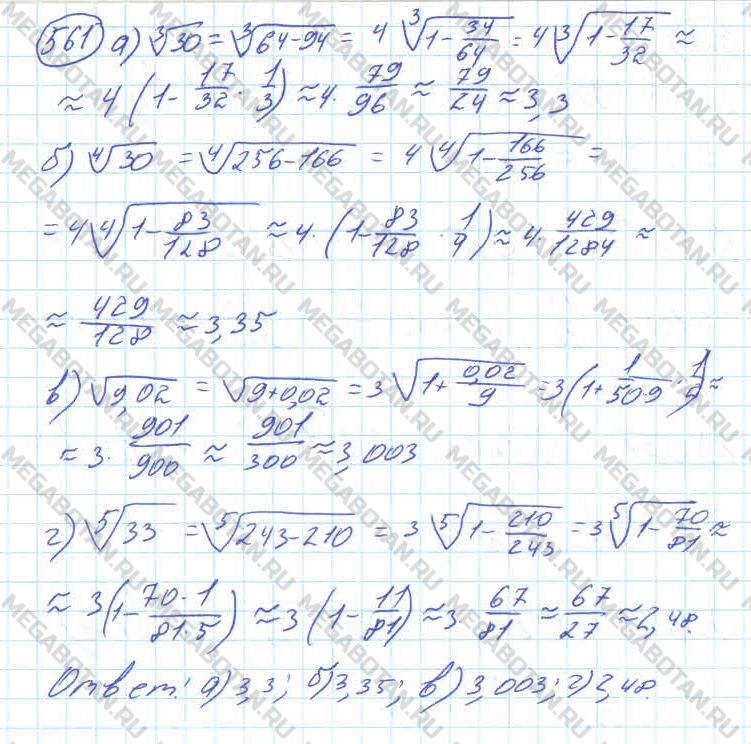 561 а) ∛30 = ∛(64-94) = 4 ∛(1-34/64) = 4 ∛(1-17/32) ≈
≈ 4 (1-17/32 · 1/3) ≈ 4 · 79/96 ≈ 79/24 ≈ 3,3
б) ∜30 = ∜(256-166) = 4 ∜(1-166/256) =
= 4 ∜(1-83/128) ≈ 4 · (1-83/128 · 1/4) ≈ 4 · 429/1284 ≈
≈ 429/128 ≈ 3,35
в) √9,02 = √(9+0,02) = 3 √(1+0,02/9) = 3 (1+1/(50·9) · 1/2) ≈
= 3 · 901/900 ≈ 901/300 ≈ 3,003
г) ⁵√33 = ⁵√(243-210) = 3 ⁵√(1-210/243) = 3 ⁵√(1-70/81) ≈
≈ 3 (1-70·1/81·5) ≈ 3 (1-11/81) ≈ 3 · 67/81 ≈ 67/27 ≈ 2,48.
Ответ: а) 3,3; б) 3,35; в) 3,003; г) 2,48.
MEGABOTAN.RU